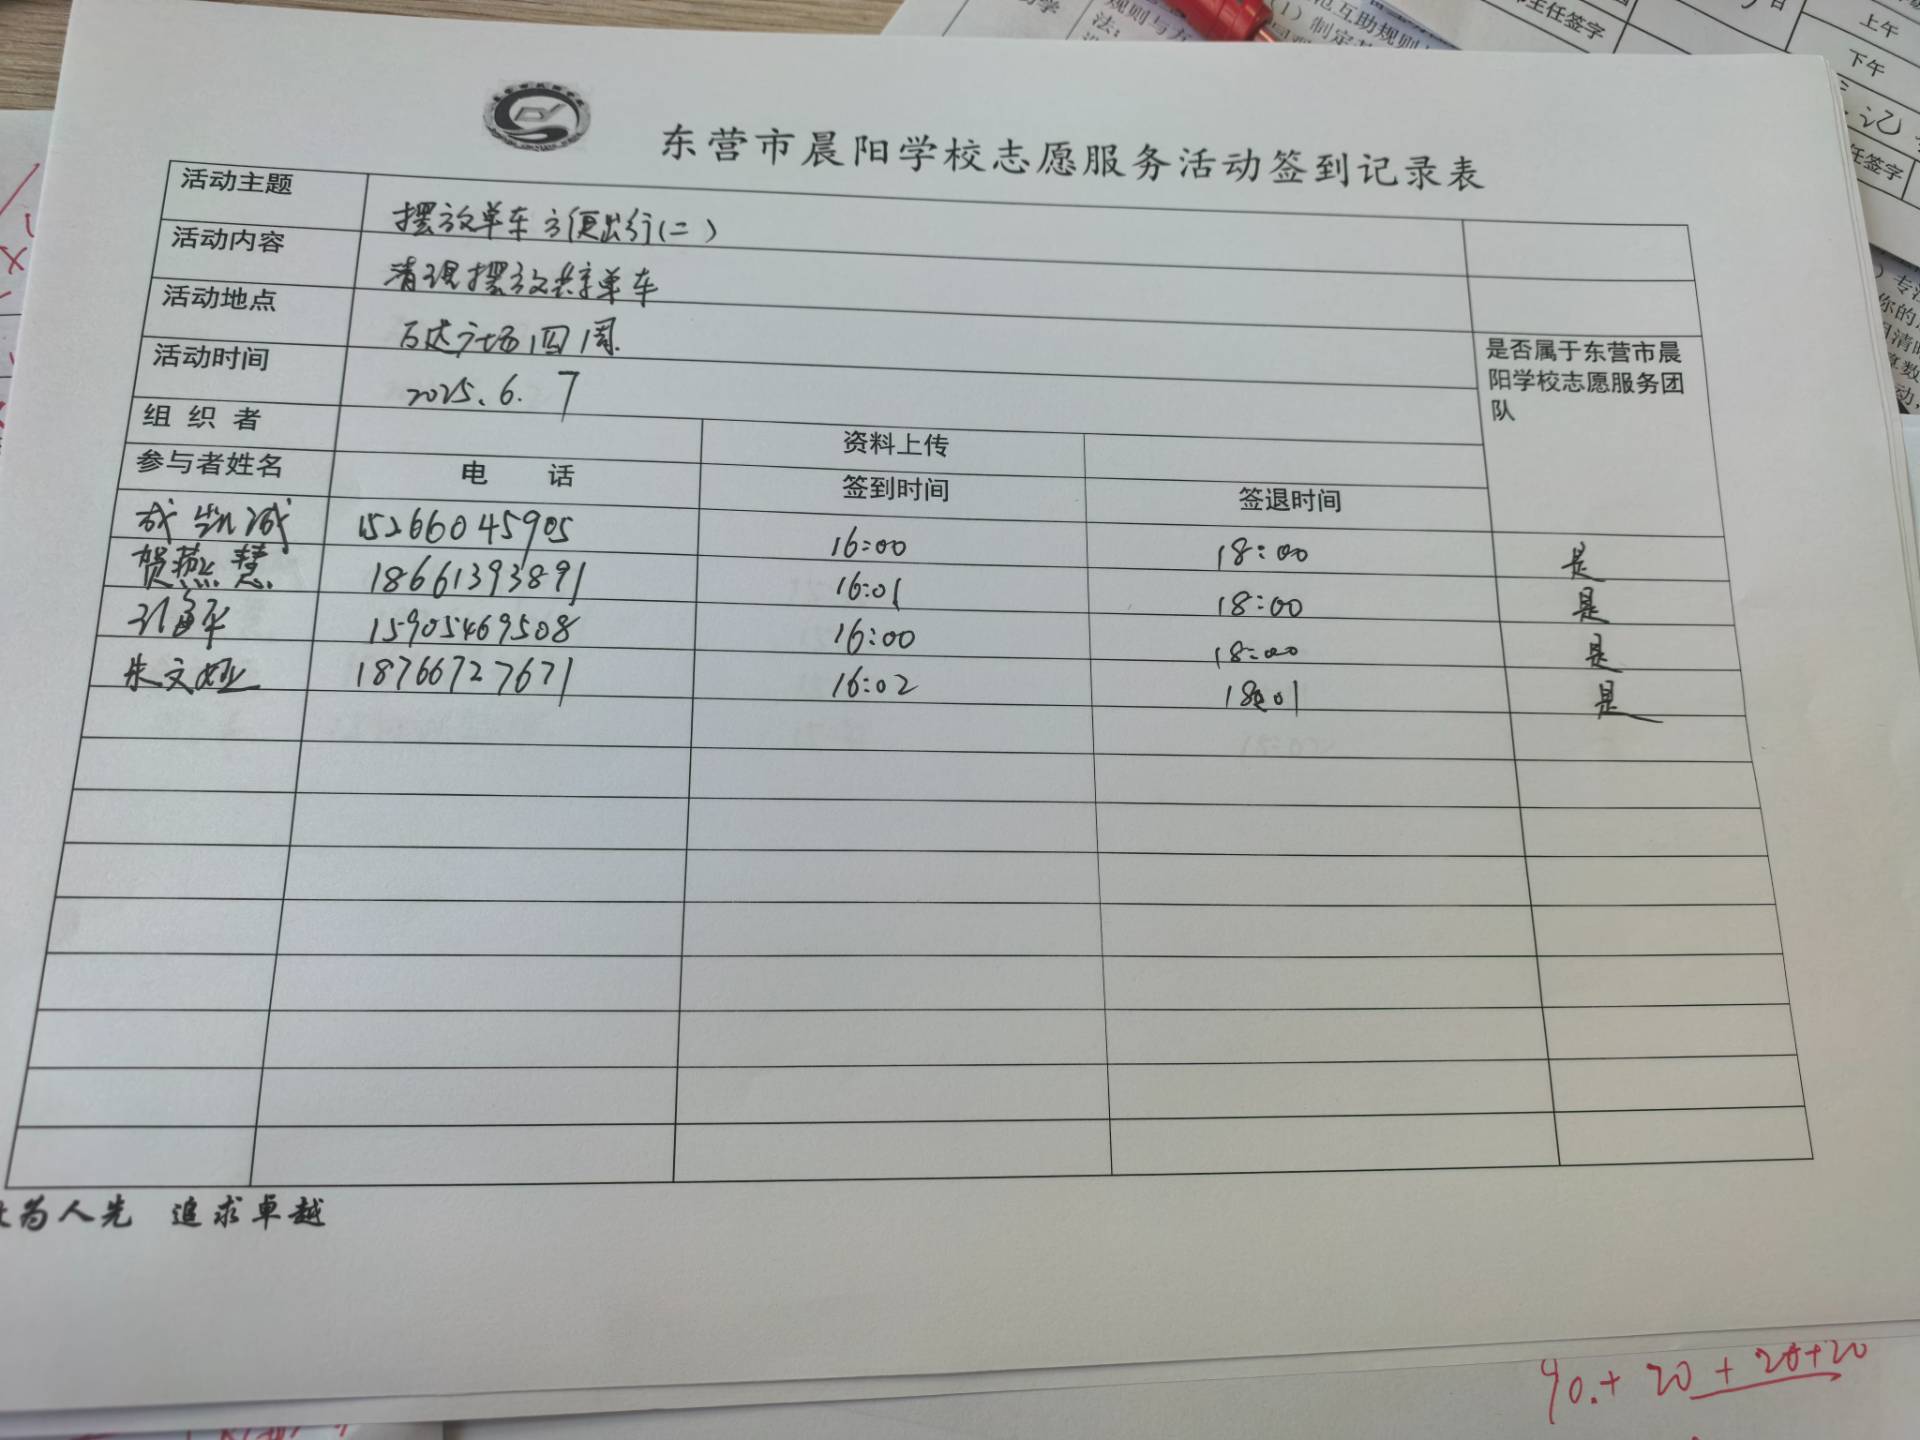 东营市晨阳学校志愿服务活动签到记录表
活动主题 摆放单车 方便出行(二)
活动内容 清理摆放共享单车
活动地点 万达广场四周
活动时间 2025.6.7
是否属于东营市晨阳学校志愿服务团队
组织者 资料上传
参与者姓名 电话 签到时间 签退时间
成凯诚 15266045905 16:00 18:00 是
贺燕慧 18661393891 16:01 18:00 是
15905469508 16:00 18:00 是
朱文娅 18766727671 16:02 18:01 是
为人先 追求卓越
90.+20+20+20
上午
下午
主任签字
任签字